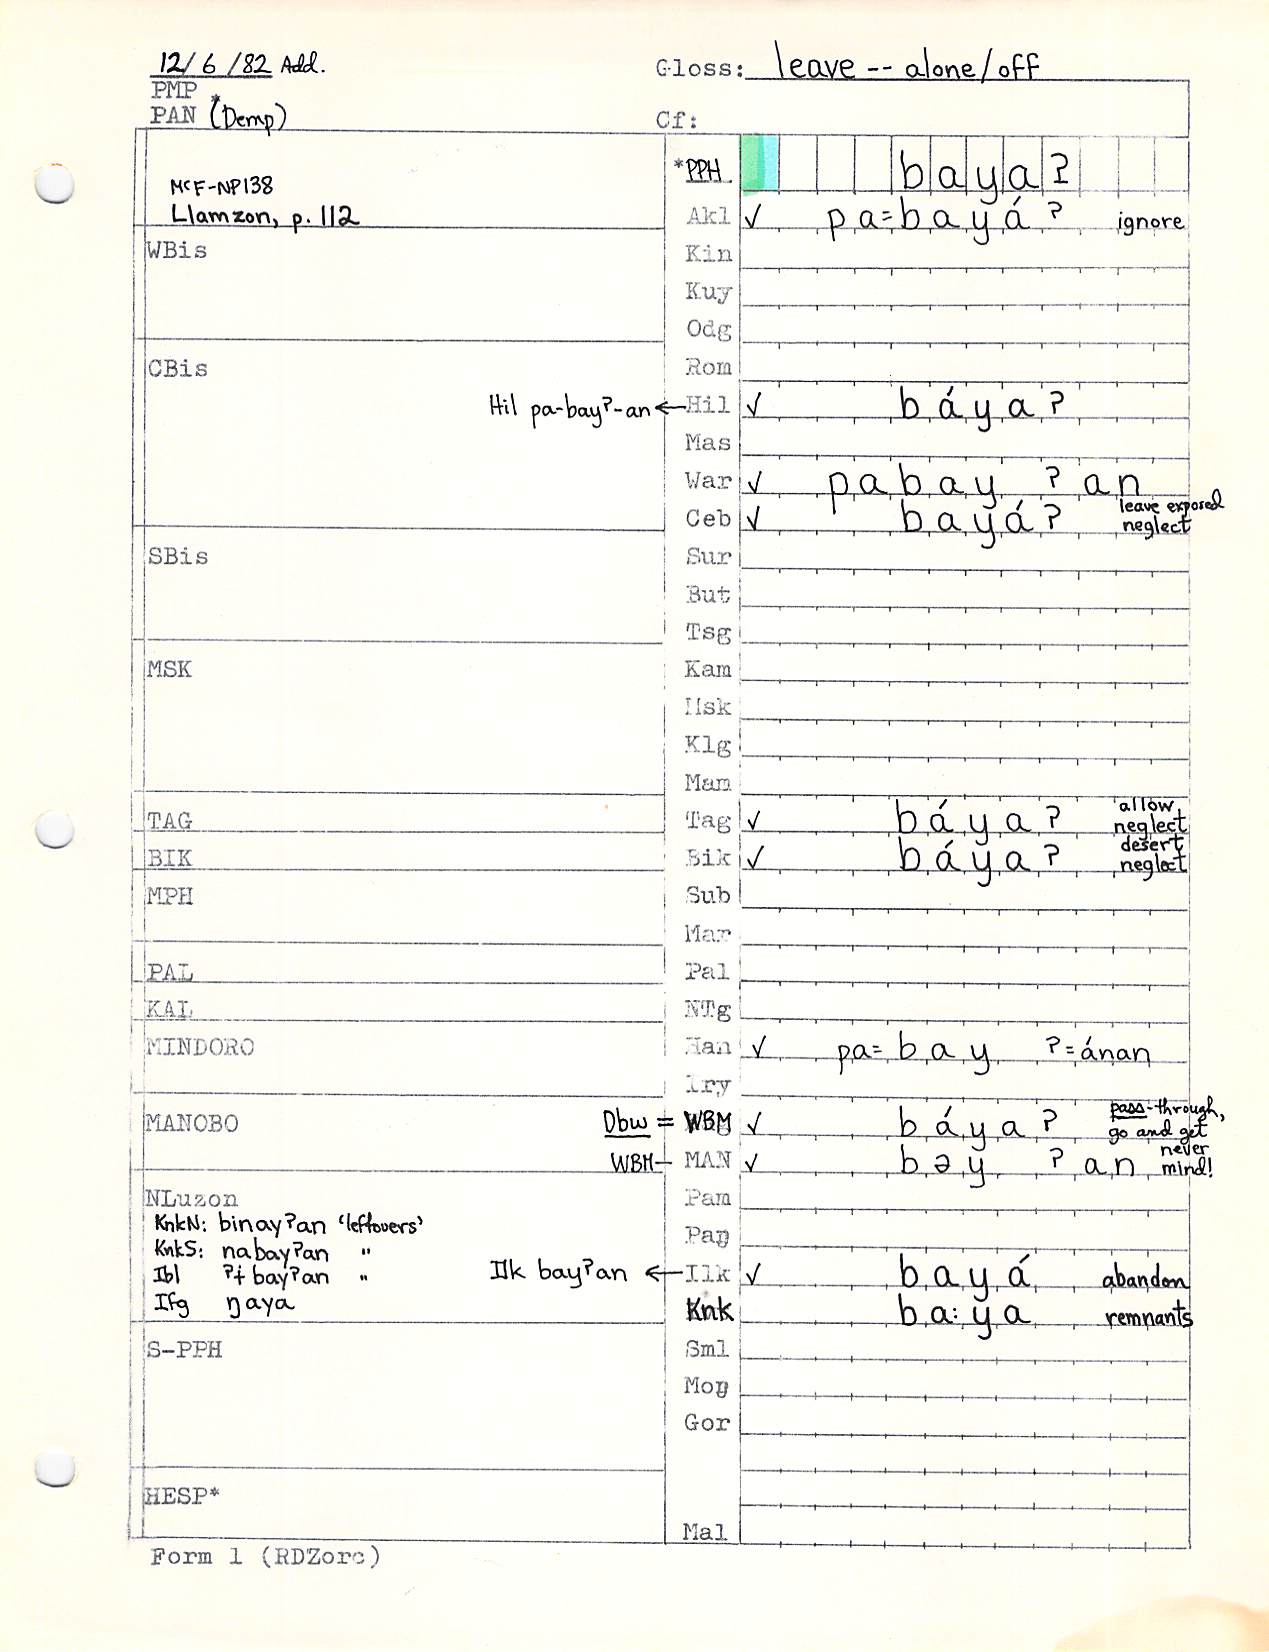 12/6/82 Add.
Gloss: leave -- alone/off
PMP *
PAN (Demp)
Cf:
McF-NP138
Llamzon, p. 112
*PPH bayaʔ
Akl ✓ pa=bayáʔ ignore
WBis
Kin
Kuy
Odg
CBis
Rom
Hil pa-bayʔ-an ← Hil ✓ báyaʔ
Mas
War ✓ pabay ʔan
Ceb ✓ bayáʔ leave exposed
neglect
SBis
Sur
But
Tsg
MSK
Kam
Msk
Klg
Mam
TAG
Tag ✓ báyaʔ allow,
neglect
BIK
Bik ✓ báyaʔ desert,
neglect
MPH
Sub
Mar
PAL
Pal
KAL
NTg
MINDORO
Han ✓ pa=bay ʔ=ánan
Iry
MANOBO
Dbw = WBM ✓ báyaʔ pass-through,
go and get
WBM— MAN ✓ bəy ʔan never
mind!
NLuzon
Pam
KnkN: binayʔan 'leftovers'
Pag
KnkS: nabayʔan "
Ibl ʔɨbayʔan "
Ilk bayʔan ← Ilk ✓ bayá abandon
Ifg ŋaya
Knk ba:ya remnants
S-PPH
Sml
Mog
Gor
HESP*
Mal
Form 1 (RDZorc)